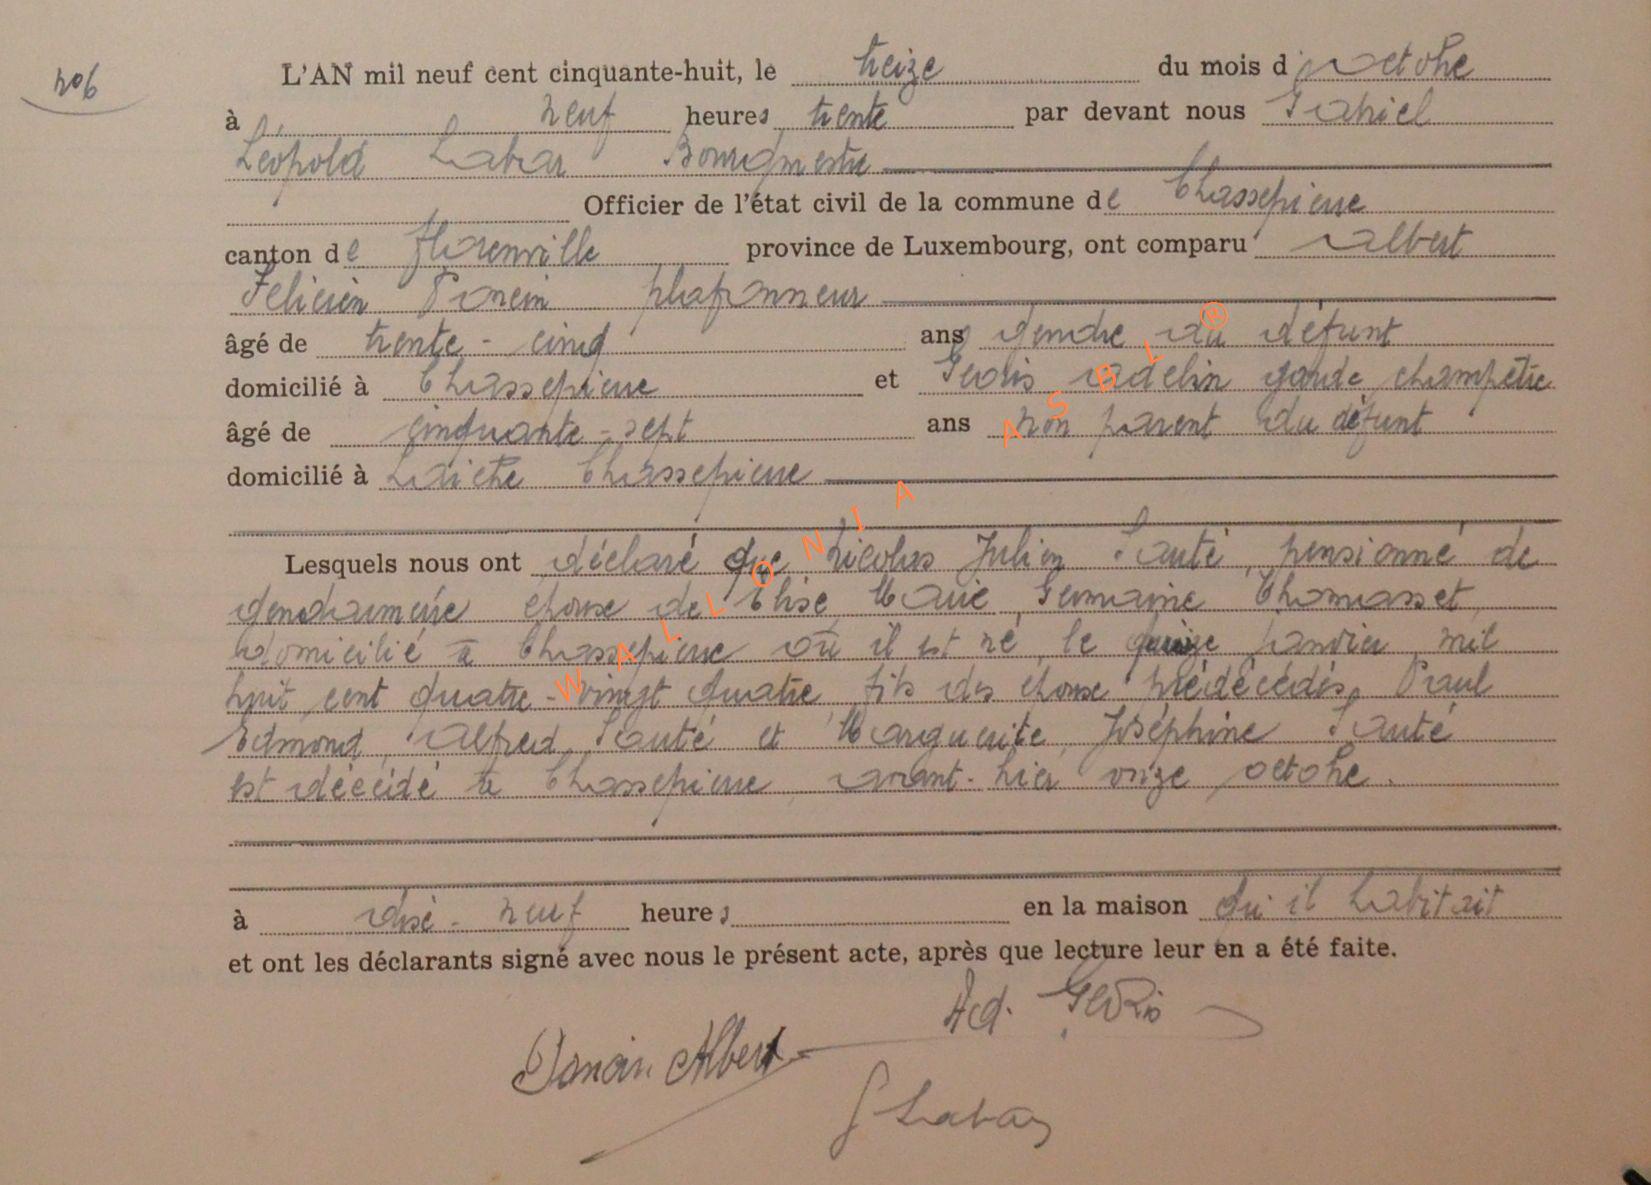 n°6
L'AN mil neuf cent cinquante-huit, le treize du mois d'octobre
à neuf heures trente par devant nous Gabriel
Léopold Labar Bourgmestre
Officier de l'état civil de la commune de Chassepierre
canton de Florenville province de Luxembourg, ont comparu Albert
Félicien Poncin plafonneur
âgé de trente-cinq ans gendre du défunt
domicilié à Chassepierre et Georis Adelin garde champêtre
âgé de cinquante-sept ans non parent du défunt
domicilié à Laiche Chassepierre
Lesquels nous ont déclaré que Nicolas Julien Santé, pensionné de
gendarmerie époux de Elise Marie Germaine Thomasset,
domicilié à Chassepierre où il est né, le quinze janvier mil
huit cent quatre-vingt quatre fils des époux prédécédés, Paul
Edmond, Alfred, Santé et Marguerite, Joséphine Santé
est décédé à Chassepierre, avant-hier onze octobre.
à dix-neuf heures en la maison qu'il habitait
et ont les déclarants signé avec nous le présent acte, après que lecture leur en a été faite.
Ad. Georis
Poncin Albert
G Labar
WALLONIA ASBL ®